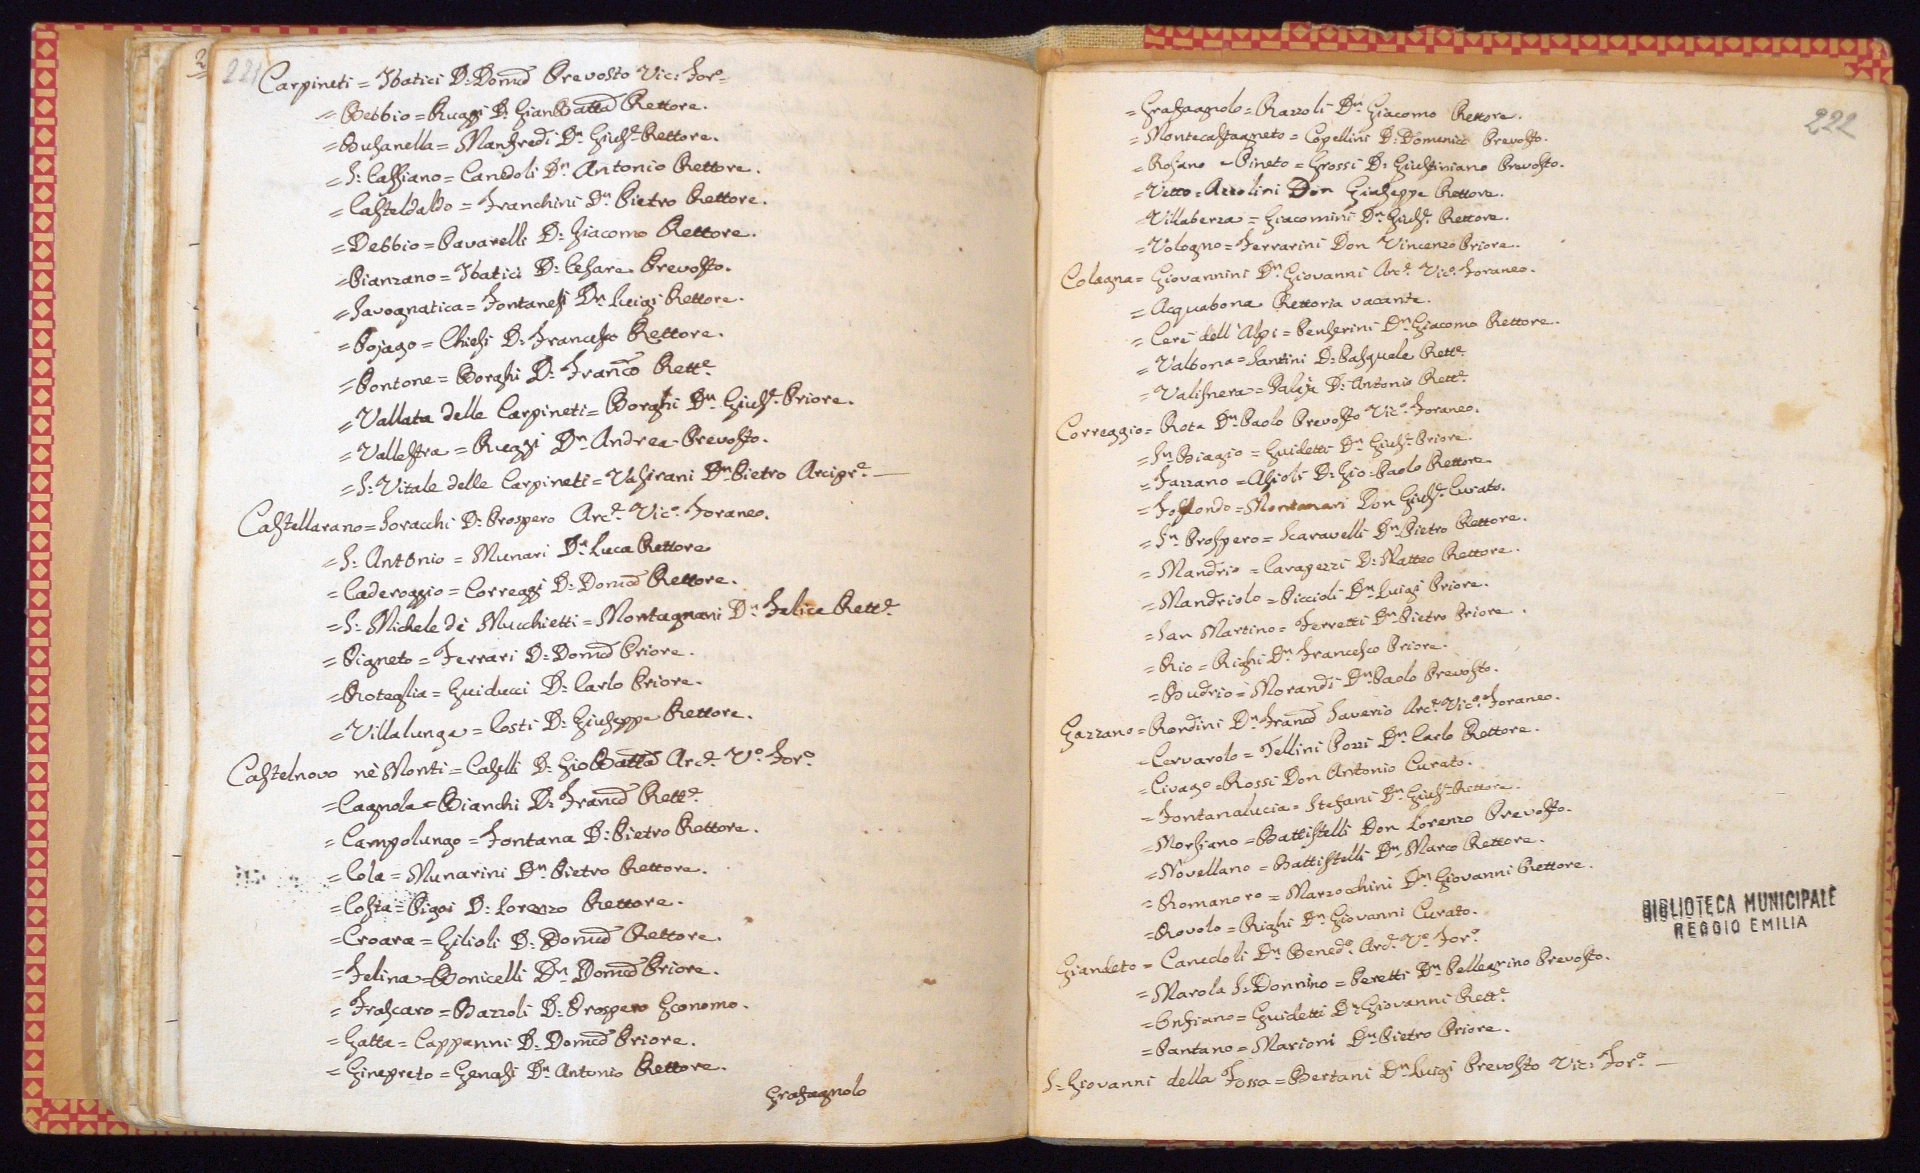 221
Carpineti = Ibatici D: Domco Prevosto Vic: Foro=
= Bebbio = Ruggi D: GianBatta Rettore.
= Busanella = Manfredi Dn Giuse Rettore.
= S: Cassiano = Candoli Dn Antonio Rettore.
= Casteldaldo = Franchini Dn Pietro Rettore.
= Debbio = Pavarelli D: Giacomo Rettore.
= Pianzano = Ibatici D: Cesare Prevosto.
= Savognatica = Fontanesi Dn Luigi Rettore.
= Pojago = Chiesi D: Francesco Rettore.
= Pontone = Borghi D: Franco Rette.
= Vallata delle Carpineti = Borghi Dn Giuse. Priore.
= Vallestra = Ruggi Dn Andrea Prevosto.
= S: Vitale delle Carpineti = Valsirani Dn Pietro Arcipre. —
Castellarano = Soracchi D: Prospero Arce. Vico. Foraneo.
= S: Antonio = Munari Dn Luca Rettore
= Caderoggio = Correggi D: Domco Rettore.
= S: Michele dè Mucchietti = Montagnani Dn Felice Rette.
= Pigneto = Ferrari D: Domco Priore.
= Roteglia = Guiducci D: Carlo Priore.
= Villalunga = Costi D: Giuseppe Rettore.
Castelnovo nè Monti = Caselli D: GioBatta Arce. Vo. Foro.
= Cagnola = Bianchi D: Franco Rette.
= Campolungo = Fontana D: Pietro Rettore.
= Cola = Munarini Dn Pietro Rettore.
= Costa = Pigoi D: Lorenzo Rettore.
= Croara = Gilioli D: Domco Rettore.
= Felina = Bonicelli Dn Domco Priore.
= Frascaro = Bazzoli D: Prospero Economo.
= Gatta = Cappanni D: Domco Priore.
= Ginepreto = Genasi Dn Antonio Rettore.
Grasagnolo
222
= Grasagnolo = Razzoli Dn Giacomo Rettore.
= Montecastagneto = Copellini D: Domenico Prevosto.
= Rosano e Pineto = Grossi D: Giustiniano Prevosto.
= Vetto = Azzolini Don Giuseppe Rettore.
= Villaberza = Giacomini Dn Giuse. Rettore.
= Vologno = Ferrarini Don Vincenzo Priore.
Colagna = Giovannini Dn Giovanni Arce. Vico. Foraneo.
= Acquabona Rettoria vacante.
= Cerè dell'Alpi = Penserini Dn Giacomo Rettore.
= Valbona = Santini D: Pasquale Rette
= Valisnera = Palaja D: Antonio Rette.
Correggio = Rota Dn Paolo Prevosto Vico. Foraneo.
= Sn Biagio = Guidetti Dn Giuse Priore.
= Fazzano = Asioli D: Gio: Paolo Rettore
= Fosdondo = Montanari Don Giuse. Curato.
= Sn Prospero = Scaravelli Dn Pietro Rettore.
= Mandrio = Carapezzi D: Matteo Rettore.
= Mandriolo = Piccioli Dn Luigi Priore.
= San Martino = Ferretti Dn Pietro Priore.
= Rio = Righi Dn Francesco Priore.
= Budrio = Morandi Dn Paolo Prevosto.
Gazzano = Rondini Dn Franco Saverio Arce. Vico. Foraneo.
= Cervarolo = Tellini Pozzi Dn Carlo Rettore.
= Civago = Rossi Don Antonio Curato.
= Fontanalucia = Stefani Dn Giuse Rettore.
= Morsiano = Battistelli Don Lorenzo Prevosto.
= Novellano = Battistelli Dn Marco Rettore.
= Romanoro = Marzocchini Dn Giovanni Rettore.
= Rovolo = Righi Dn Giovanni Curato.
Giandeto = Canedoli Dn Benedo. Arce. Vo. Foro.
= Marola S: Donnino = Peretti Dn Pellegrino Prevosto.
= Onfiano = Guidetti Dn Giovanni Rette
= Pantano = Marioni Dn Pietro Priore.
S: Giovanni della Fossa = Bertani Dn Luigi Prevosto Vic: Foro. —
BIBLIOTECA MUNICIPALE
REGGIO EMILIA